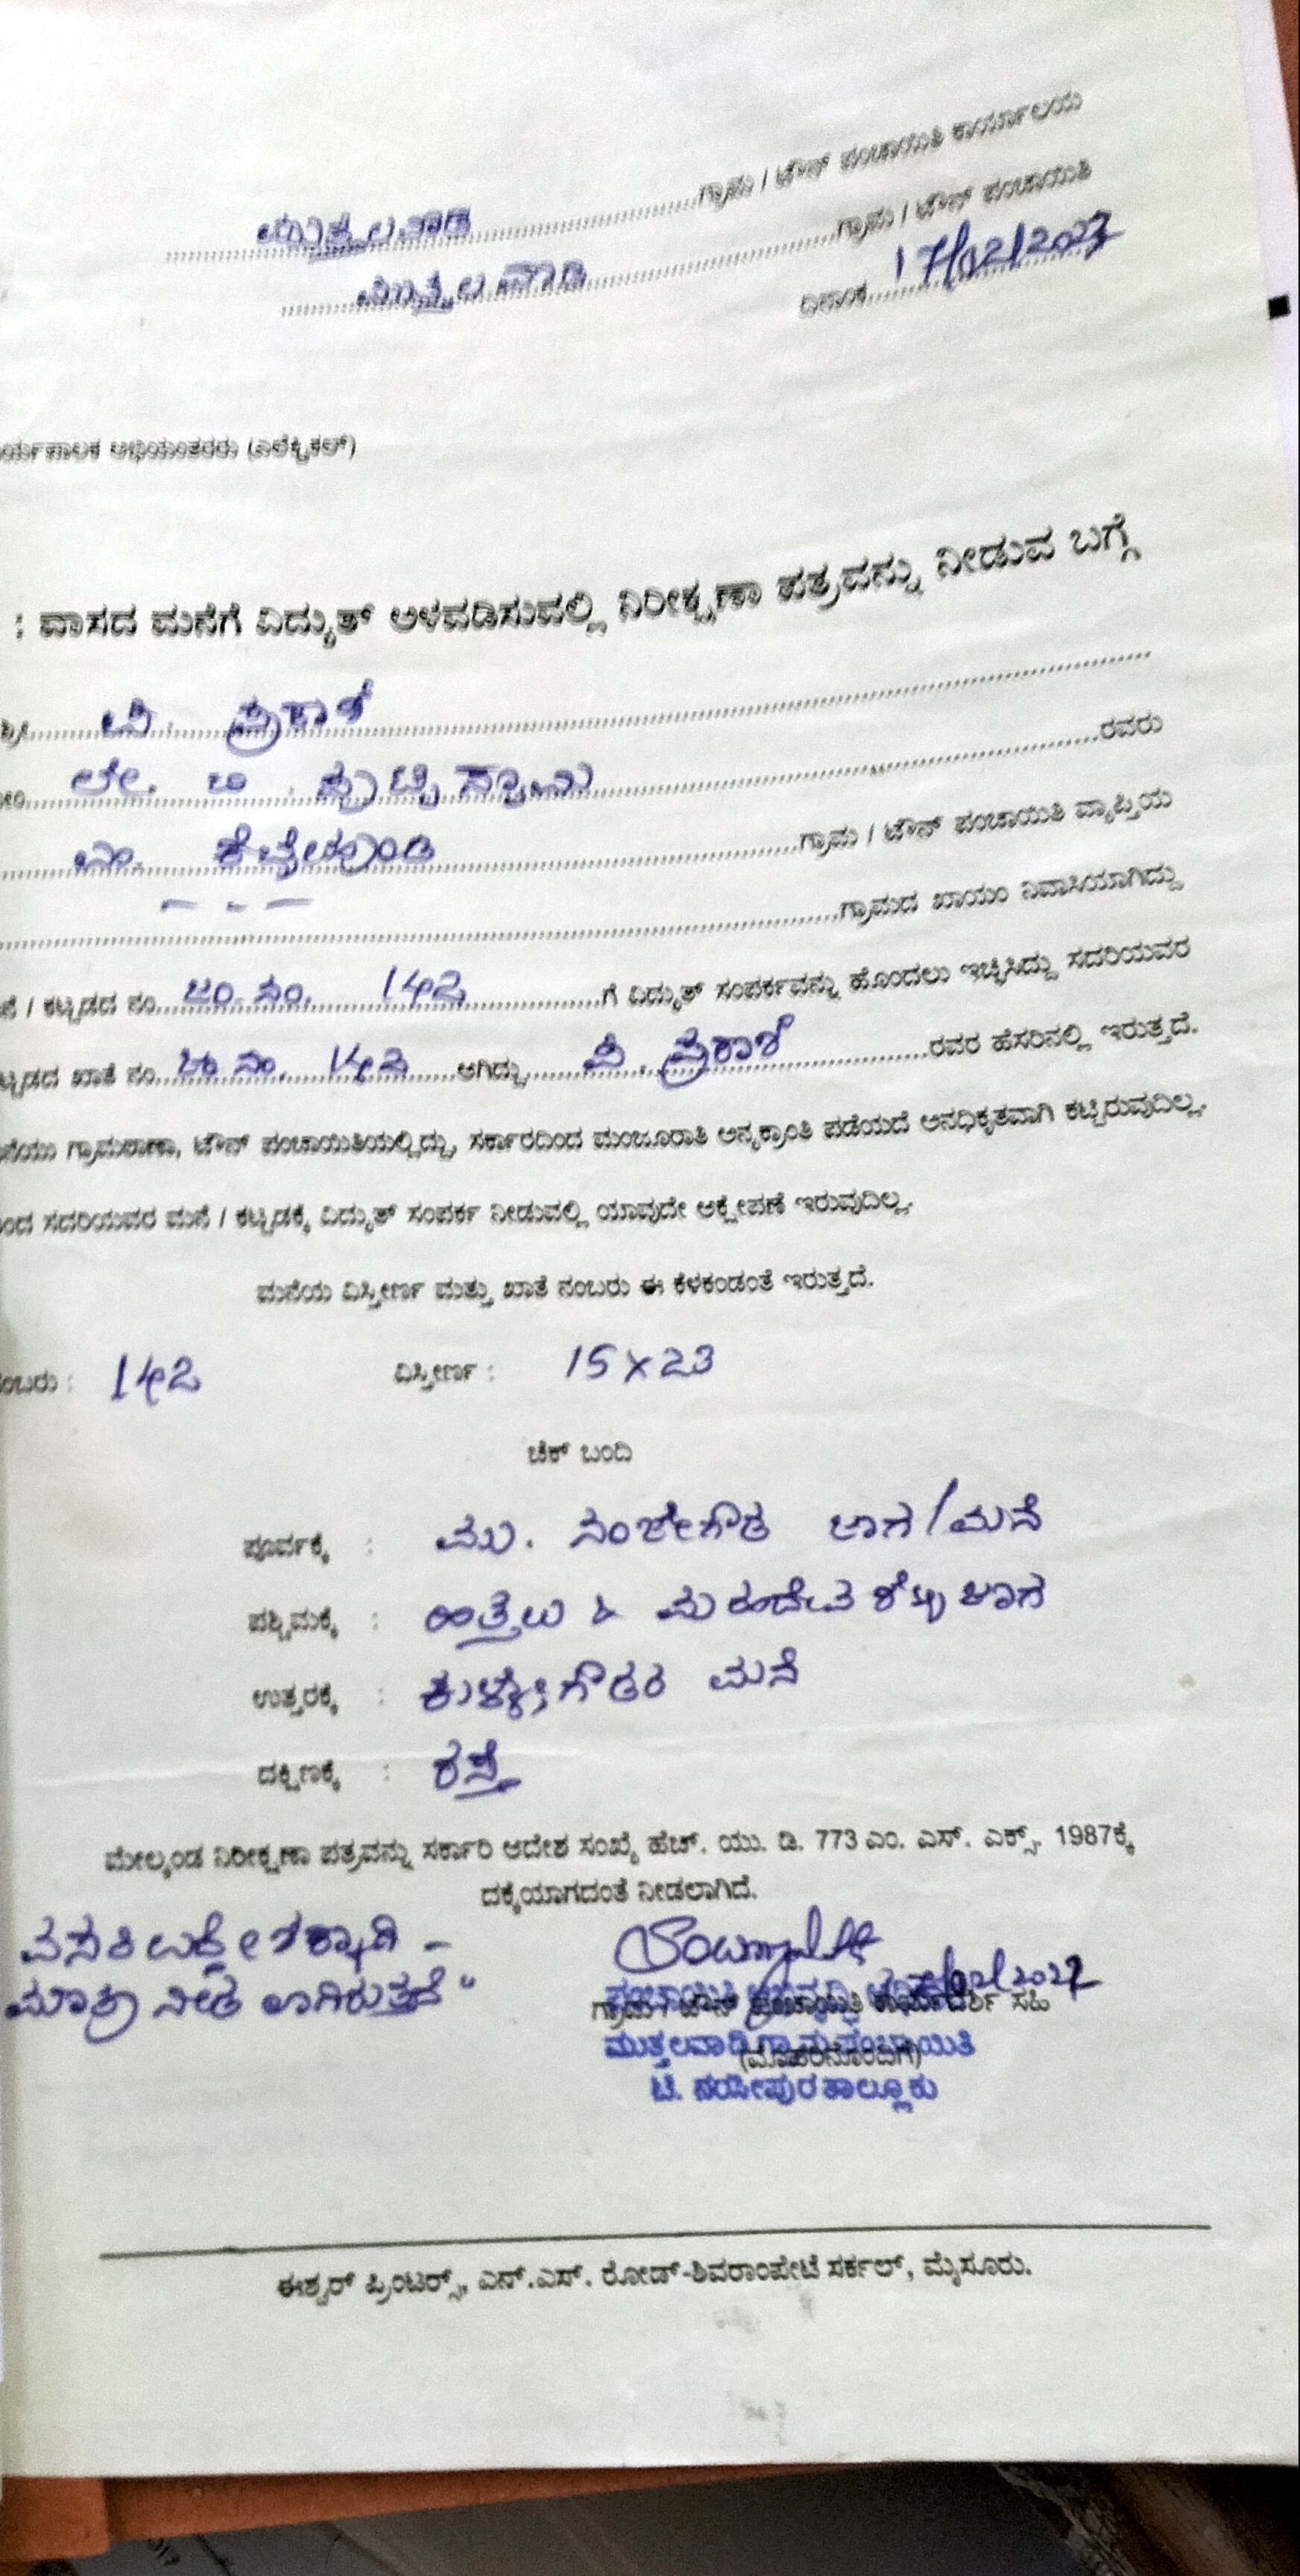 ಮುತ್ತಲವಾಡಿ ಗ್ರಾಮ / ಟೌನ್ ಪಂಚಾಯಿತಿ ಕಾರ್ಯಾಲಯ
ಮುತ್ತಲವಾಡಿ ಗ್ರಾಮ / ಟೌನ್ ಪಂಚಾಯಿತಿ
ದಿನಾಂಕ
ರ್ಯಪಾಲಕ ಅಭಿಯಂತರರು (ಎಲೆಕ್ಟ್ರಿಕಲ್)
: ವಾಸದ ಮನೆಗೆ ವಿದ್ಯುತ್ ಅಳವಡಿಸುವಲ್ಲಿ ನಿರೀಕ್ಷಣಾ ಪತ್ರವನ್ನು ನೀಡುವ ಬಗ್ಗೆ
ಪಿ. ಪ್ರಕಾಶ್
ಲೇ. ಪುಟ್ಟಸ್ವಾಮಿ ರವರು
ಗ್ರಾಮ / ಟೌನ್ ಪಂಚಾಯಿತಿ ವ್ಯಾಪ್ತಿಯ
ಗ್ರಾಮದ ಖಾಯಂ ನಿವಾಸಿಯಾಗಿದ್ದು
ನೆ / ಕಟ್ಟಡದ ನಂ. ಜಂ. ನಂ. 142 ಗೆ ವಿದ್ಯುತ್ ಸಂಪರ್ಕವನ್ನು ಹೊಂದಲು ಇಚ್ಛಿಸಿದ್ದು ಸದರಿಯವರ
ಟ್ಟಡದ ಖಾತೆ ನಂ. ಖಾ ನಂ. 142 ಆಗಿದ್ದು ಪಿ. ಪ್ರಕಾಶ್ ರವರ ಹೆಸರಿನಲ್ಲಿ ಇರುತ್ತದೆ.
ನೆಯು ಗ್ರಾಮಠಾಣಾ, ಟೌನ್ ಪಂಚಾಯಿತಿಯಲ್ಲಿದ್ದು, ಸರ್ಕಾರದಿಂದ ಮಂಜೂರಾತಿ ಅನ್ಯಕ್ರಾಂತಿ ಪಡೆಯದೆ ಅನಧಿಕೃತವಾಗಿ ಕಟ್ಟಿರುವುದಿಲ್ಲ.
ಂದ ಸದರಿಯವರ ಮನೆ / ಕಟ್ಟಡಕ್ಕೆ ವಿದ್ಯುತ್ ಸಂಪರ್ಕ ನೀಡುವಲ್ಲಿ ಯಾವುದೇ ಆಕ್ಷೇಪಣೆ ಇರುವುದಿಲ್ಲ.
ಮನೆಯ ವಿಸ್ತೀರ್ಣ ಮತ್ತು ಖಾತೆ ನಂಬರು ಈ ಕೆಳಕಂಡಂತೆ ಇರುತ್ತದೆ.
ಂಬರು : 142 ವಿಸ್ತೀರ್ಣ : 15 X 23
ಚೆಕ್ ಬಂದಿ
ಪೂರ್ವಕ್ಕೆ : ಮು. ನಂಜೇಗೌಡ ಜಾಗ / ಮನೆ
ಪಶ್ಚಿಮಕ್ಕೆ : ಹಿತ್ತಲು & ಮಹದೇವ ಶೆಟ್ಟಿ ಜಾಗ
ಉತ್ತರಕ್ಕೆ : ಕುಳ್ಳೇಗೌಡರ ಮನೆ
ದಕ್ಷಿಣಕ್ಕೆ : ರಸ್ತೆ
ಮೇಲ್ಕಂಡ ನಿರೀಕ್ಷಣಾ ಪತ್ರವನ್ನು ಸರ್ಕಾರಿ ಆದೇಶ ಸಂಖ್ಯೆ ಹೆಚ್. ಯು. ಡಿ. 773 ಎಂ. ಎಸ್. ಎಕ್ಸ್. 1987ಕ್ಕೆ
ದಕ್ಕೆಯಾಗದಂತೆ ನೀಡಲಾಗಿದೆ.
ಮಾತ್ರ ನೀಡಲಾಗಿರುತ್ತದೆ "
ಪಂಚಾಯಿತಿ ಅಭಿವೃದ್ಧಿ
ಗ್ರಾಮ / ಟೌನ್ ಪಂಚಾಯಿತಿ ಕಾರ್ಯದರ್ಶಿ ಸಹಿ
ಮುತ್ತಲವಾಡಿ ಗ್ರಾಮ ಪಂಚಾಯಿತಿ
(ಮೊಹರಿನೊಂದಿಗೆ)
ಟಿ. ನರಸೀಪುರ ತಾಲ್ಲೂಕು
ಈಶ್ವರ್ ಪ್ರಿಂಟರ್ಸ್, ಎನ್.ಎಸ್. ರೋಡ್-ಶಿವರಾಂಪೇಟೆ ಸರ್ಕಲ್, ಮೈಸೂರು.